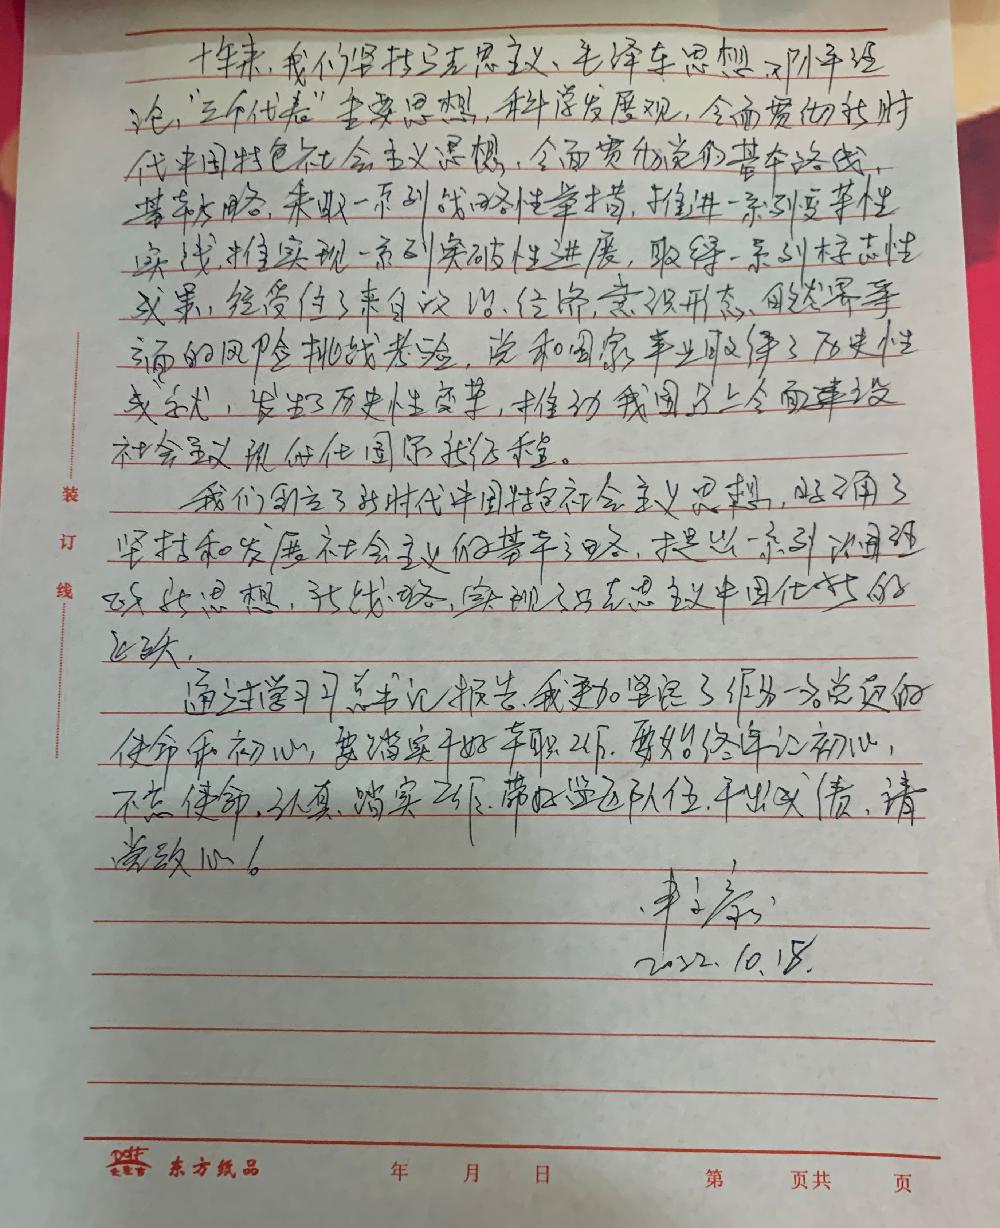 十年来,我们坚持马克思主义、毛泽东思想、邓小平理
论,"三个代表"重要思想,科学发展观,全面贯彻新时
代中国特色社会主义思想,全面贯彻党的基本路线,
基本方略,采取一系列战略性举措,推进一系列变革性
实践,推实现一系列突破性进展,取得一系列标志性
成果,经受住了来自政治、经济、意识形态、自然界等
方面的风险挑战考验,党和国家事业取得了历史性
成就,发生了历史性变革,推动我国迈上全面建设
社会主义现代化国家新征程。
我们创立了新时代中国特色社会主义思想,明确了
坚持和发展社会主义的基本方略,提出一系列治国理
政新思想,新战略,实现了马克思主义中国化新的
飞跃.
通过学习习总书记报告,我更加坚定了作为一名党员的
使命和初心,要踏实干好本职工作.要始终牢记初心,
不忘使命,认真、踏实工作、带好队伍,干出成绩,请
党放心!
2022.10.18.
装
订
线
东方纸品 年 月 日 第 页共 页